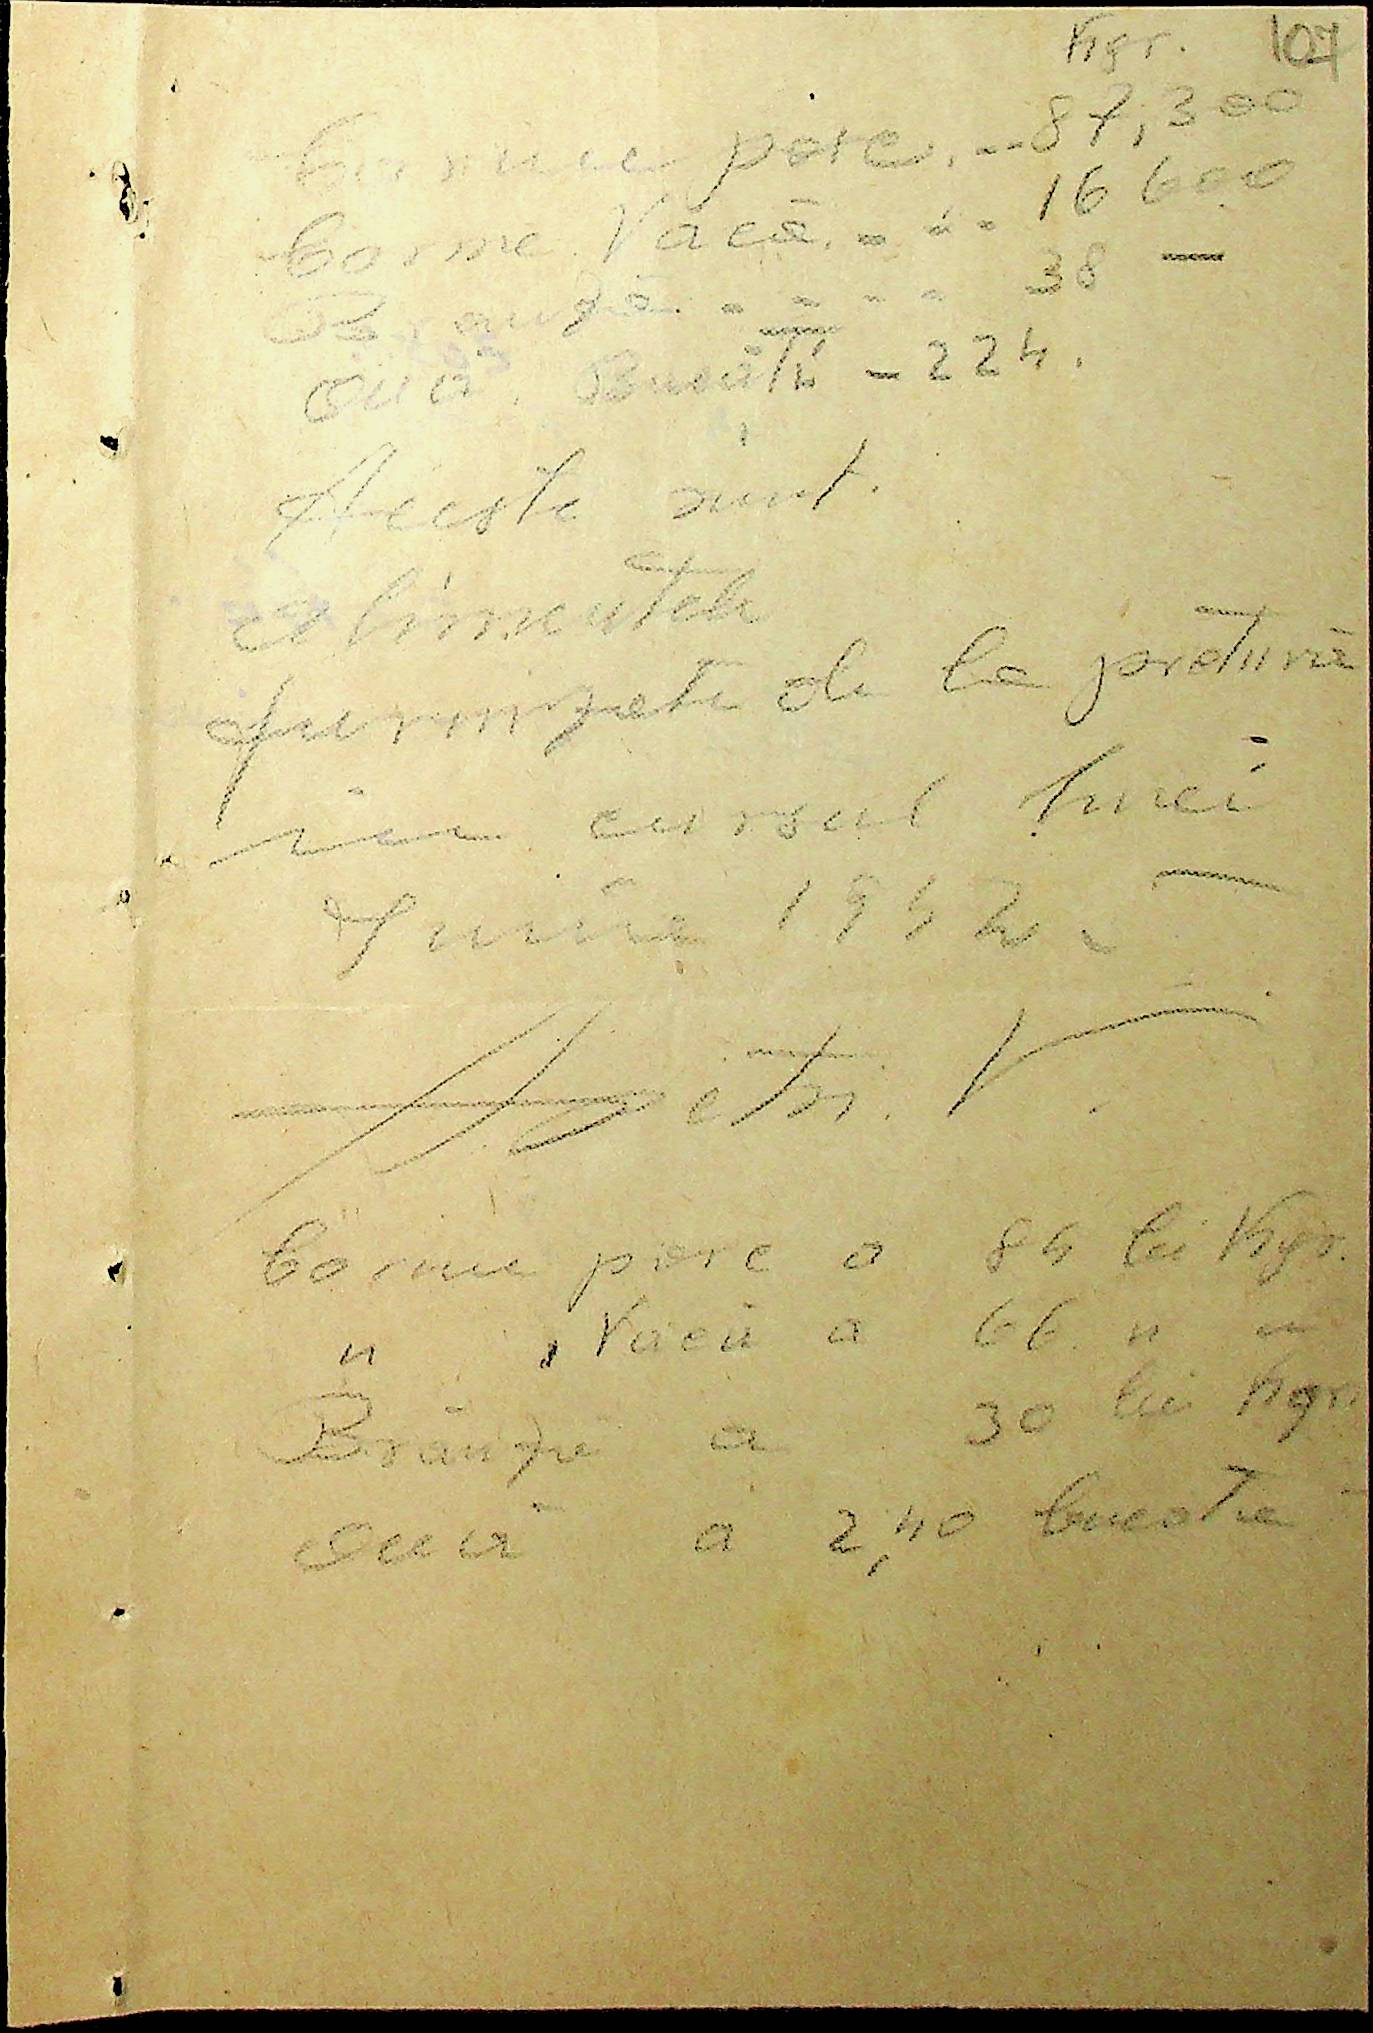 Kgr. 107
Carne porc. -- 87,300
Carne Vacă. - - - 16 600
Brânză. - - - - 38 —
Ouă, Bucăti - 224.
Aceste sunt.
Alimentele
furnizate de la pretură
în cursul lunei
Iunie 1942. -
Apetri. V
Carne porc a 84 lei Kgr.
" , Vacă a 66 " "
Brânză a 30 lei Kgr.
Ouă a 2,40 bucata